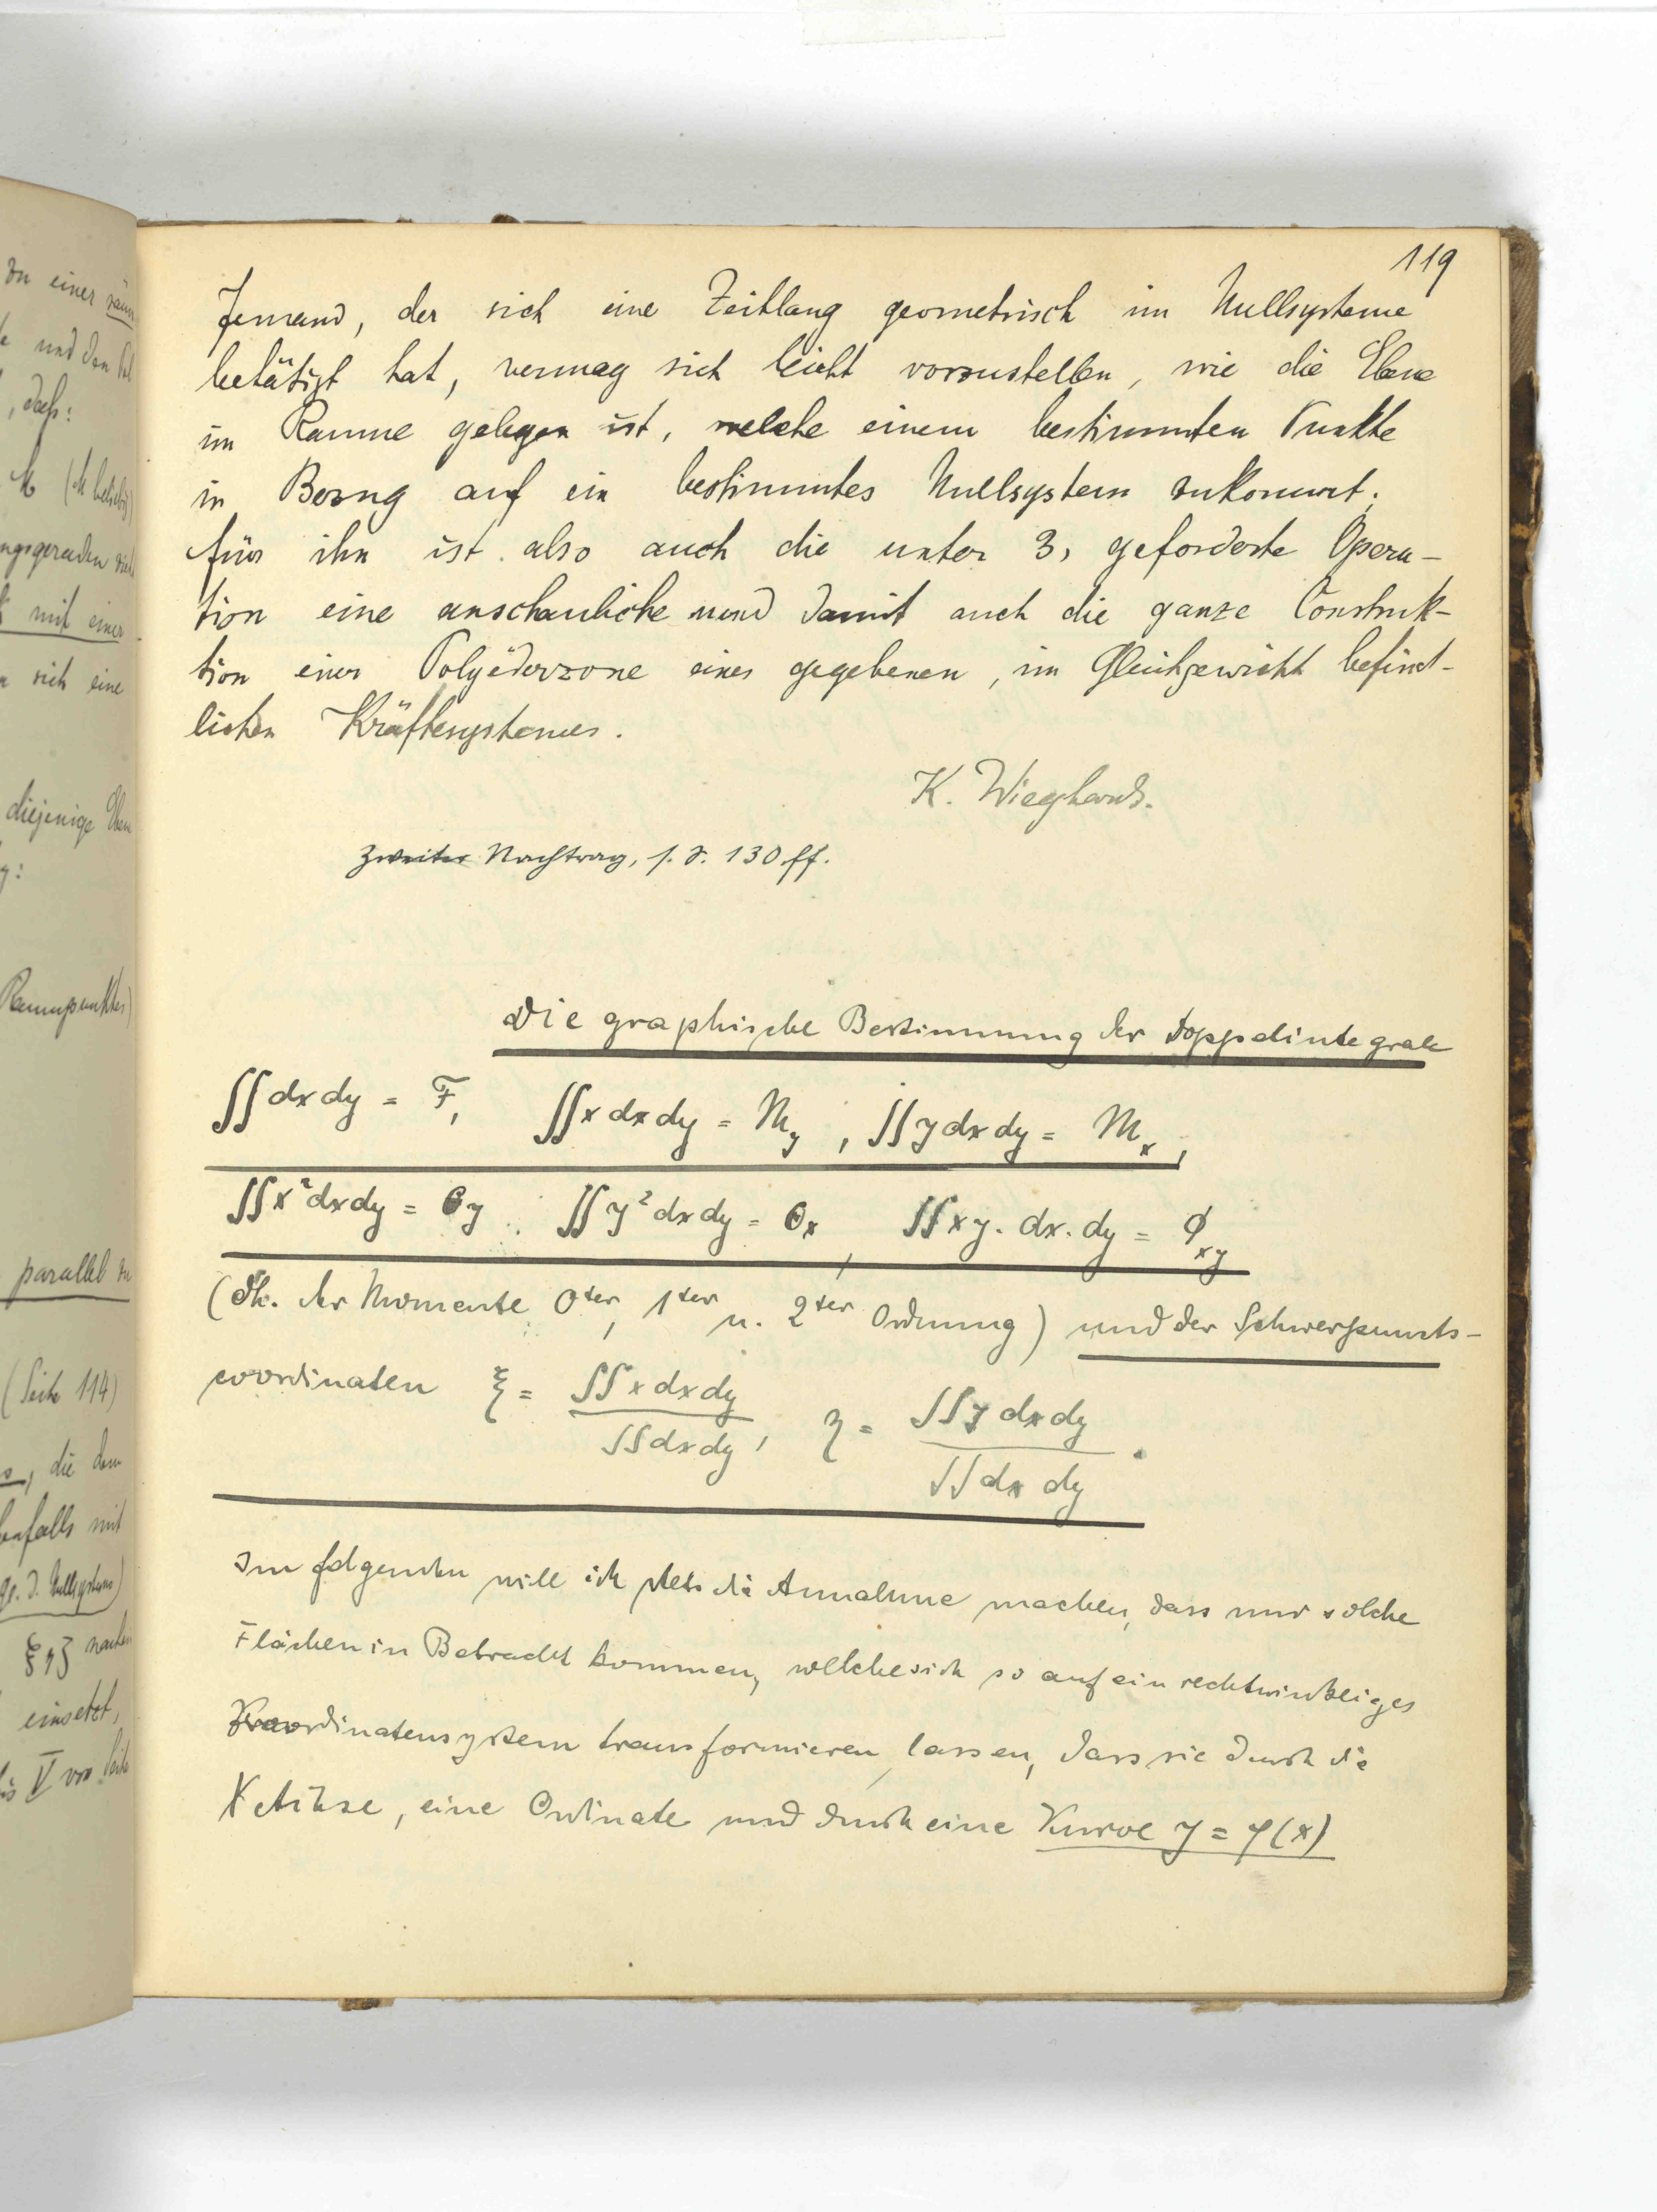 119
Jemand, der sich eine Zeitlang geometrisch im Nullsysteme
betätigt hat, vermag sich leicht vorzustellen, wie die Ebene
im Raume gelegen ist, welche einem bestimmten Punkte
in Bezug auf ein bestimmtes Nullsystem zukommt;
für ihn ist also auch die unter 3, geforderte Opera-
tion eine anschauliche und damit auch die ganze Construk-
tion einer Polyederzone eines gegebenen, im Gleichgewicht befind-
lichen Kräftesystemes.
K. Wieghardt.
Zweiter Nachtrag, s. S. 130 ff.
Die graphische Bestimmung der Doppelintegrale
∬dxdy = F, ∬x dxdy = My, ∬y dxdy = Mx,
∬x²dxdy = Θy, ∬y²dxdy = Θx, ∬xy. dx. dy = Φxy
(dh. der Momente 0ter, 1ter u. 2ter Ordnung) und der Schwerpunkts-
coordinaten ξ = ∬x dxdy / ∬dxdy, η = ∬y dxdy / ∬dx dy.
Im folgenden will ich stets die Annahme machen, dass nur solche
Flächen in Betracht kommen, welche sich so auf ein rechtwinkliges
Koordinatensystem transformieren lassen, dass sie durch die
X Achse, eine Ordinate und durch eine Kurve y = φ(x)
zu einer
und den
, daß:
M (M beliebig)
mit einer
sich eine
diejenige Eben
Raumpunktes)
parallel zu
(Seite 114)
, die dem
benfalls mit
d. Nullsystems)
ξηζ
einsetzt,
V von Seite